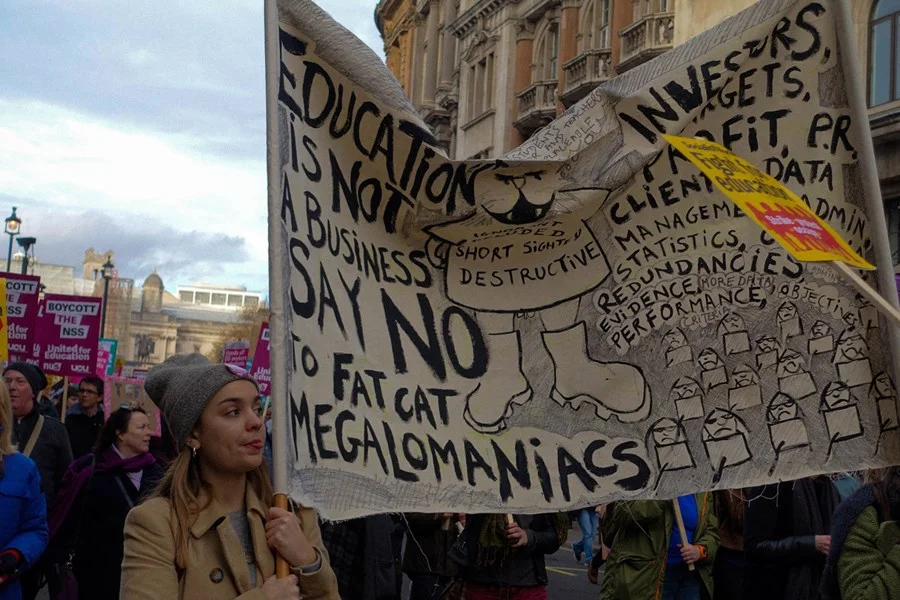 EDUCATION
IS NOT
A BUSINESS
SAY NO
TO FAT CAT
MEGALOMANIACS
SHORT SIGHTED
DESTRUCTIVE
INVESTORS,
TARGETS,
PROFIT, P.R,
CLIENT DATA
MANAGEMENT ADMIN,
STATISTICS,
REDUNDANCIES
EVIDENCE, MORE DATA, OBJECTIVES
PERFORMANCE,
CRITERIA
Fight for
education
BOYCOTT
THE
NSS
United for
Education
COTT
THE
NSS